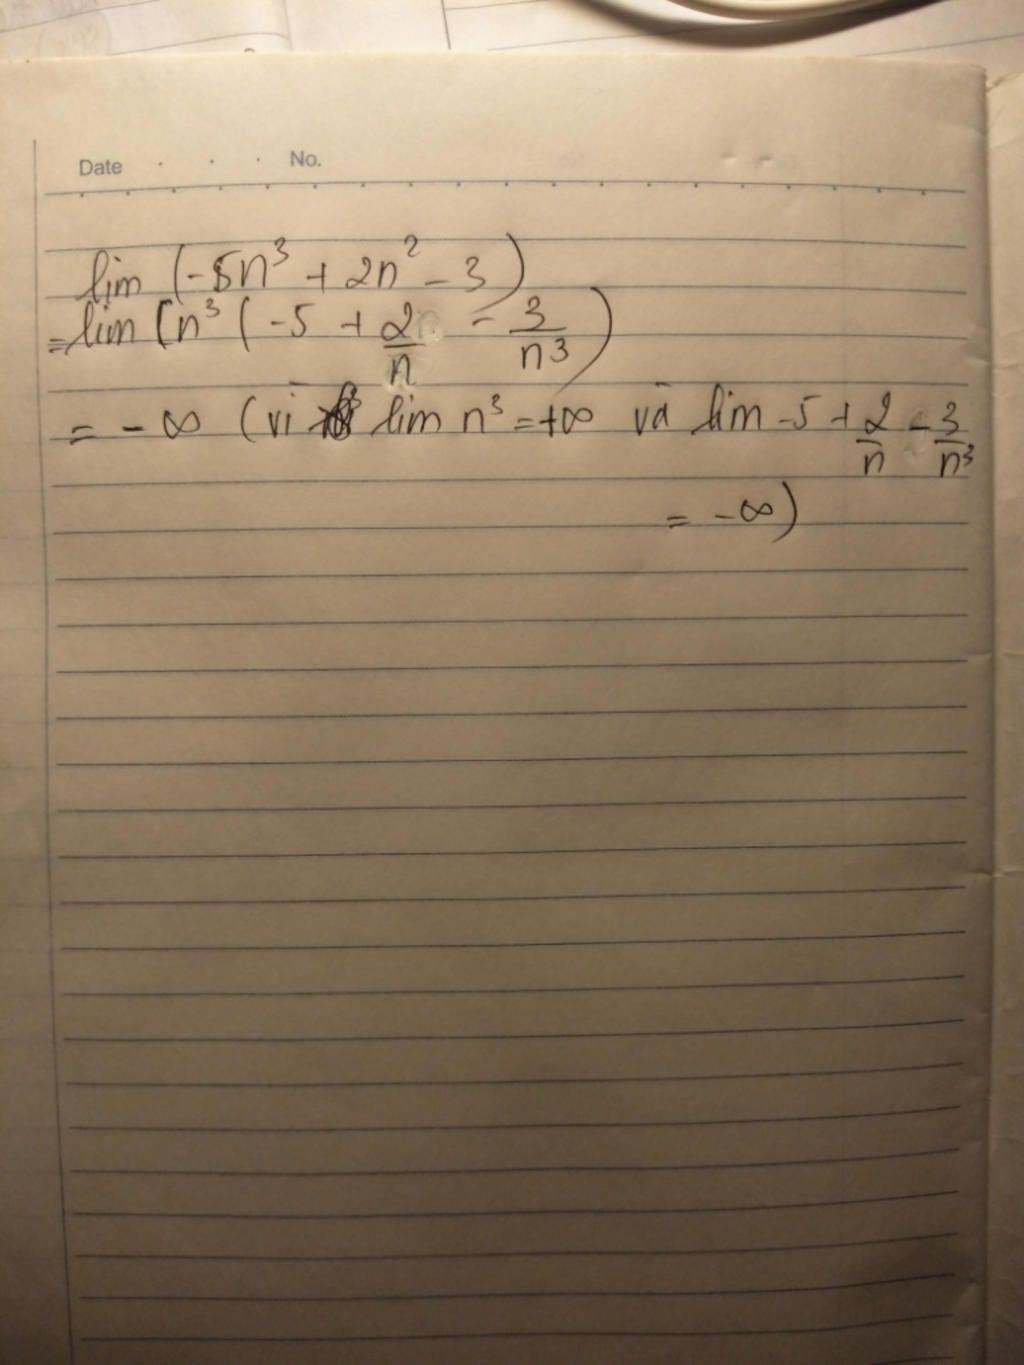 Date . . . No.
lim (-5n³ + 2n² - 3)
= lim [n³ (-5 + 2/n - 3/n³)
= -∞ (vì lim n³ = +∞ và lim -5 + 2/n - 3/n³
= -∞)